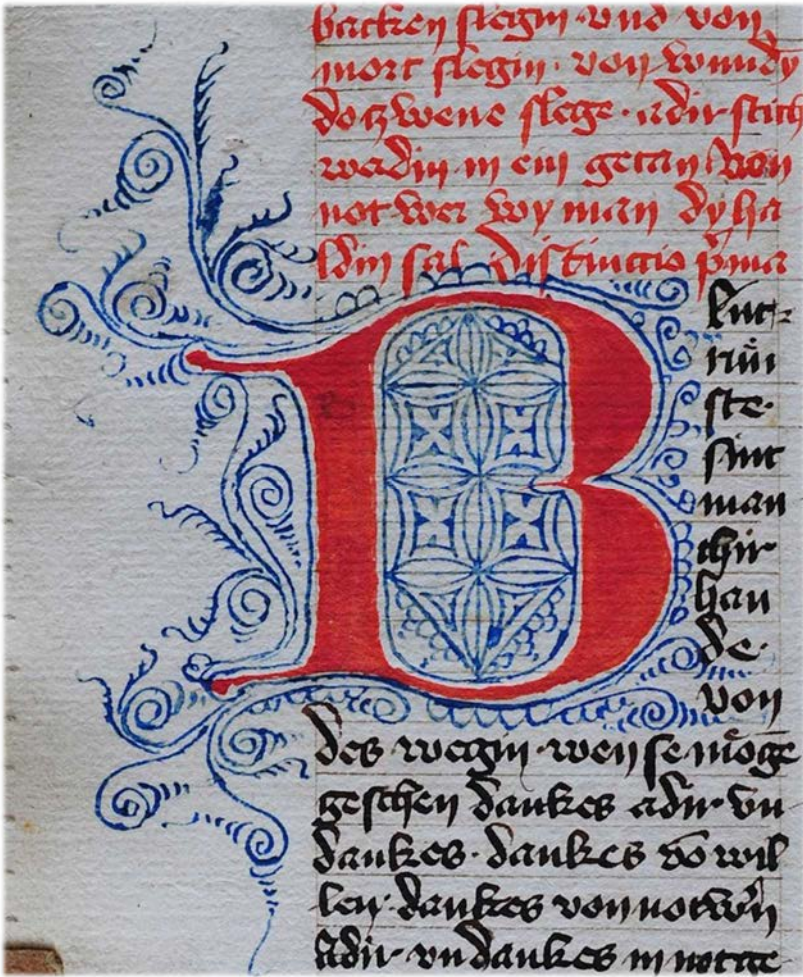 backen slegin · vnd von
mort slegin · von wundȳ
do tzwene slege · adir stich
werdin in ein getan Von
not wer wy man dy ha
ldin sal distinctio p̄ma
B
lut⸗
růn
ste ·
sint
man
chir
han
de ·
von
des wegin · wen se moge
geschen dankes adir · vn
dankes · dankes vō wil
len · dankes von notw̄n
Adir · vndankes in notge